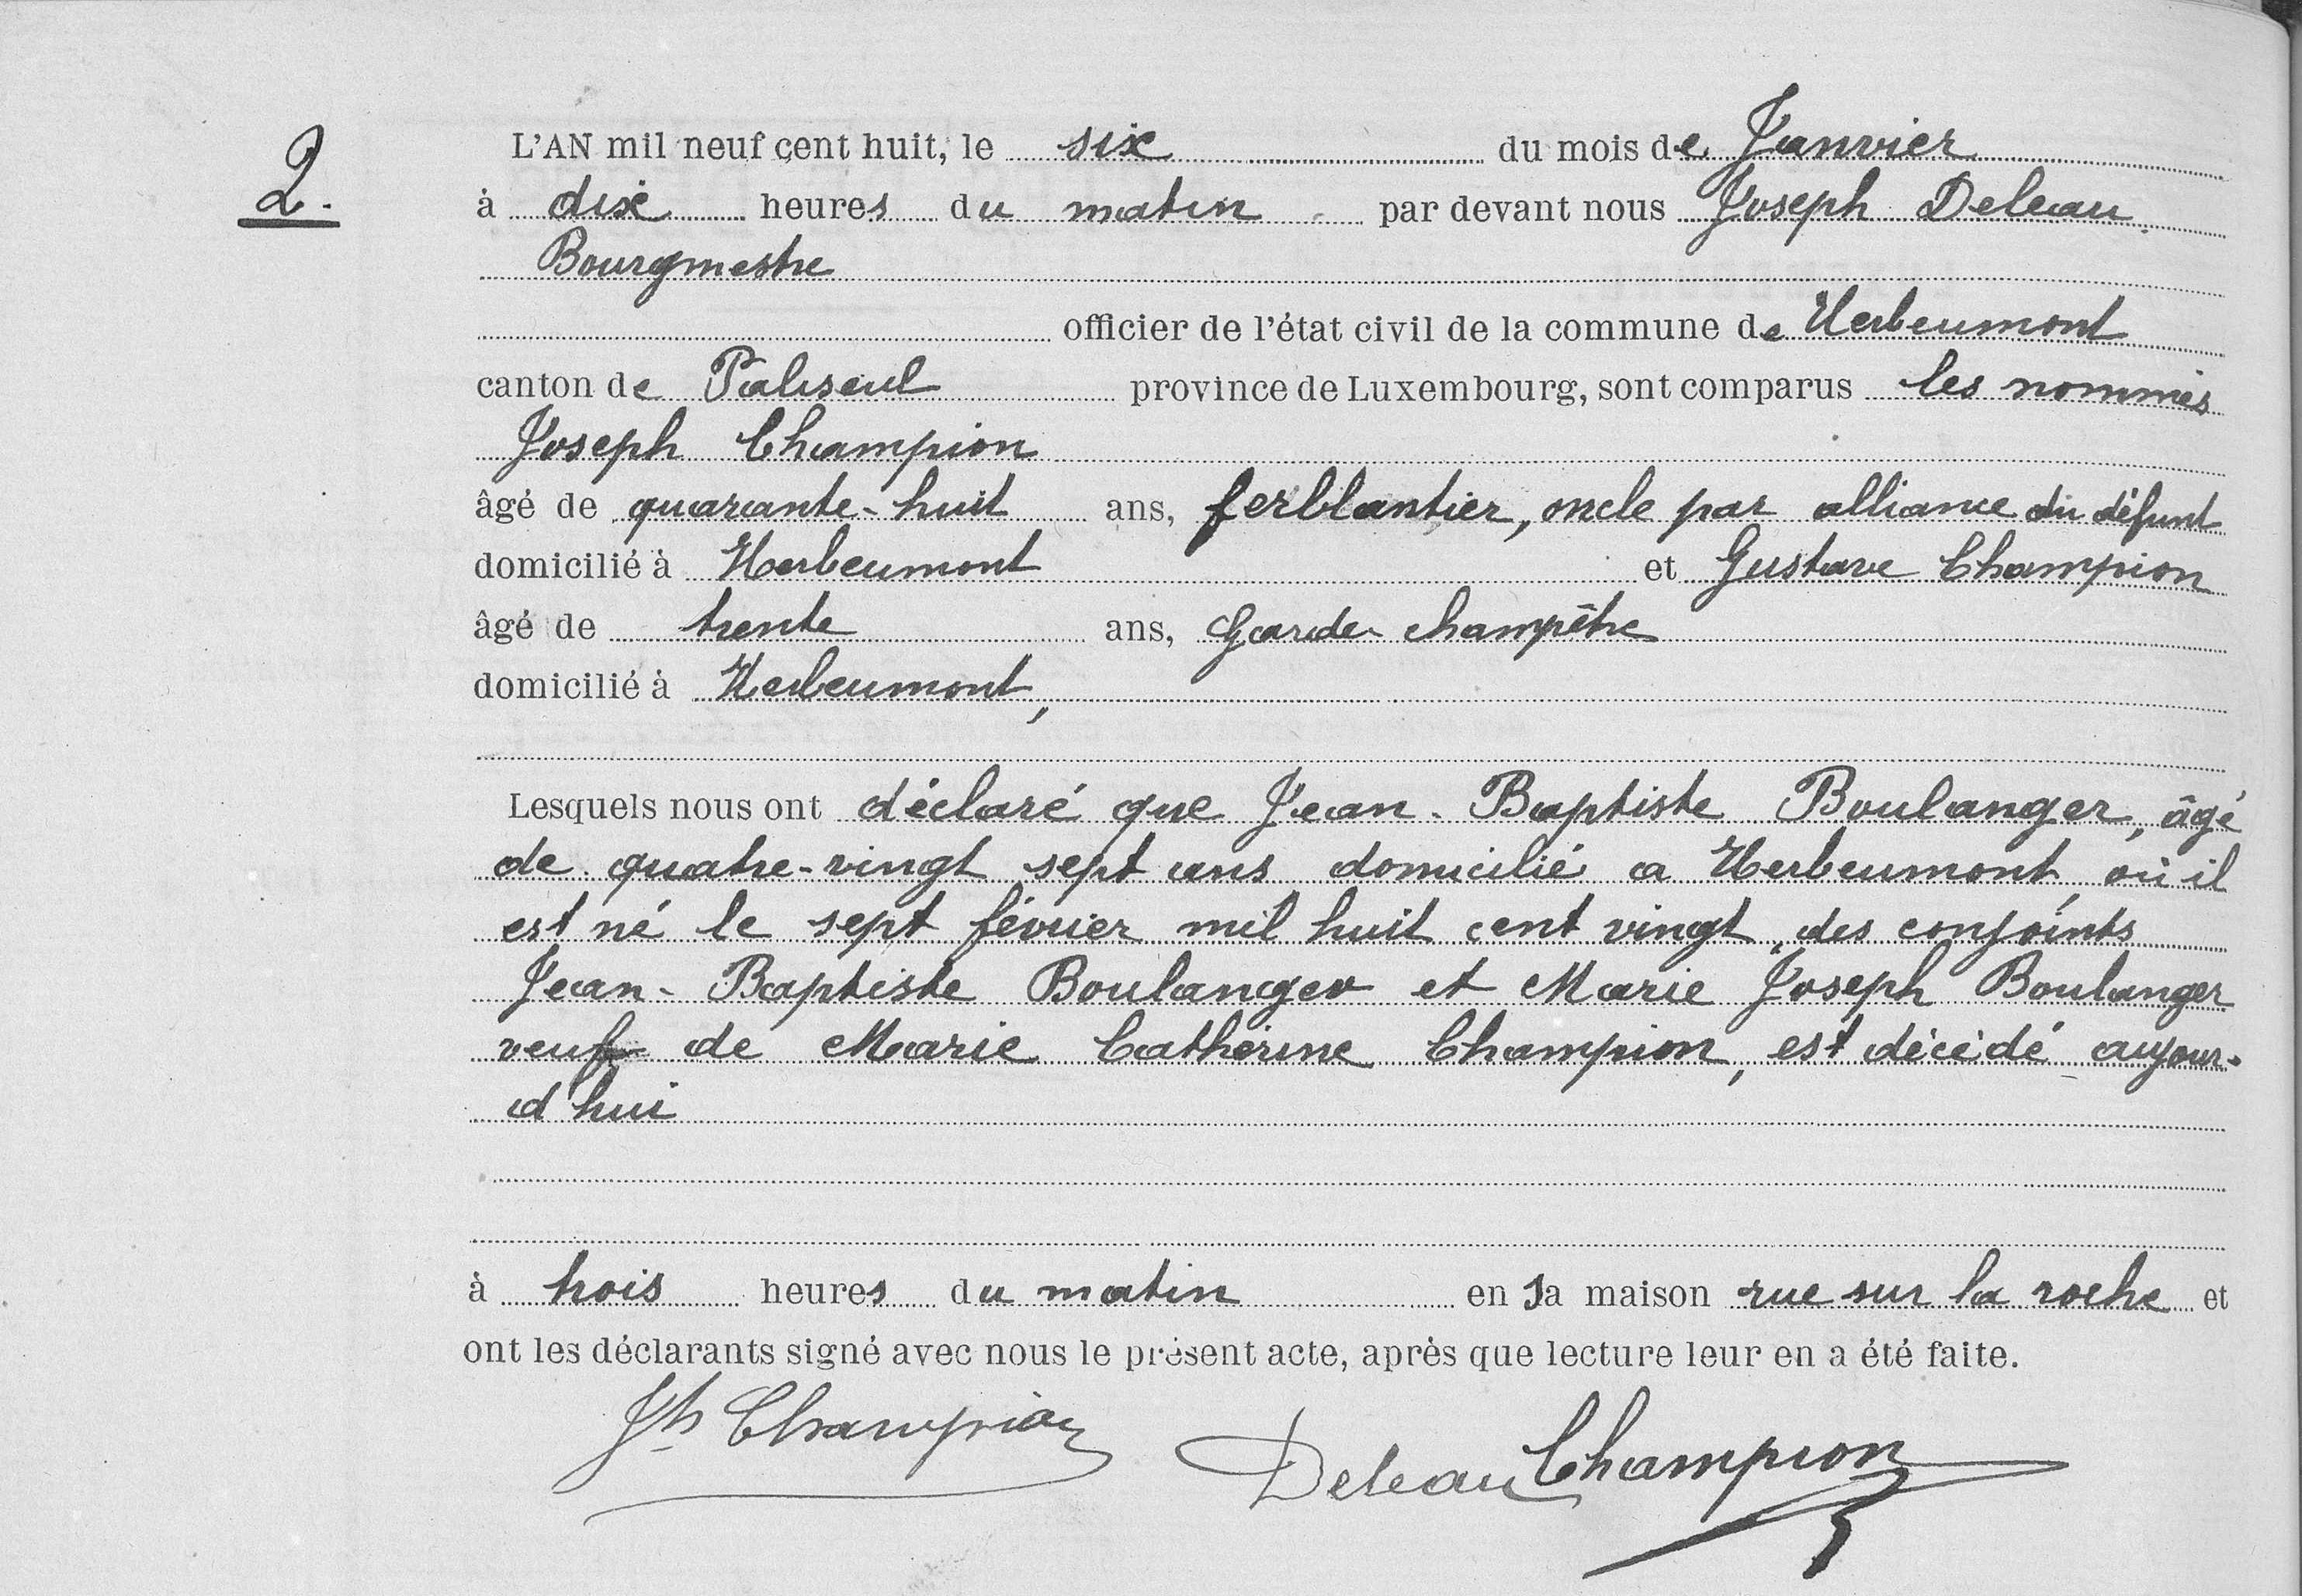 2.
L'AN mil neuf cent huit, le six du mois de Janvier
à dix heures du matin par devant nous Joseph Deleau
Bourgmestre
officier de l'état civil de la commune de Herbeumont
canton de Paliseul province de Luxembourg, sont comparus les nommés
Joseph Champion
âgé de quarante-huit ans, ferblantier, oncle par alliance du défunt
domicilié à Herbeumont et Gustave Champion
âgé de trente ans, Garde champêtre
domicilié à Herbeumont,
Lesquels nous ont déclaré que Jean-Baptiste Boulanger, âgé
de quatre-vingt sept ans domicilié a Herbeumont, où il
est né le sept février mil huit cent vingt, des conjoints
Jean-Baptiste Boulanger et Marie Joseph Boulanger
veuf de Marie Catherine Champion, est décédé aujour-
d'hui
à trois heures du matin en sa maison rue sur la roche et
ont les déclarants signé avec nous le présent acte, après que lecture leur en a été faite.
Jh Champion Deleau Champion